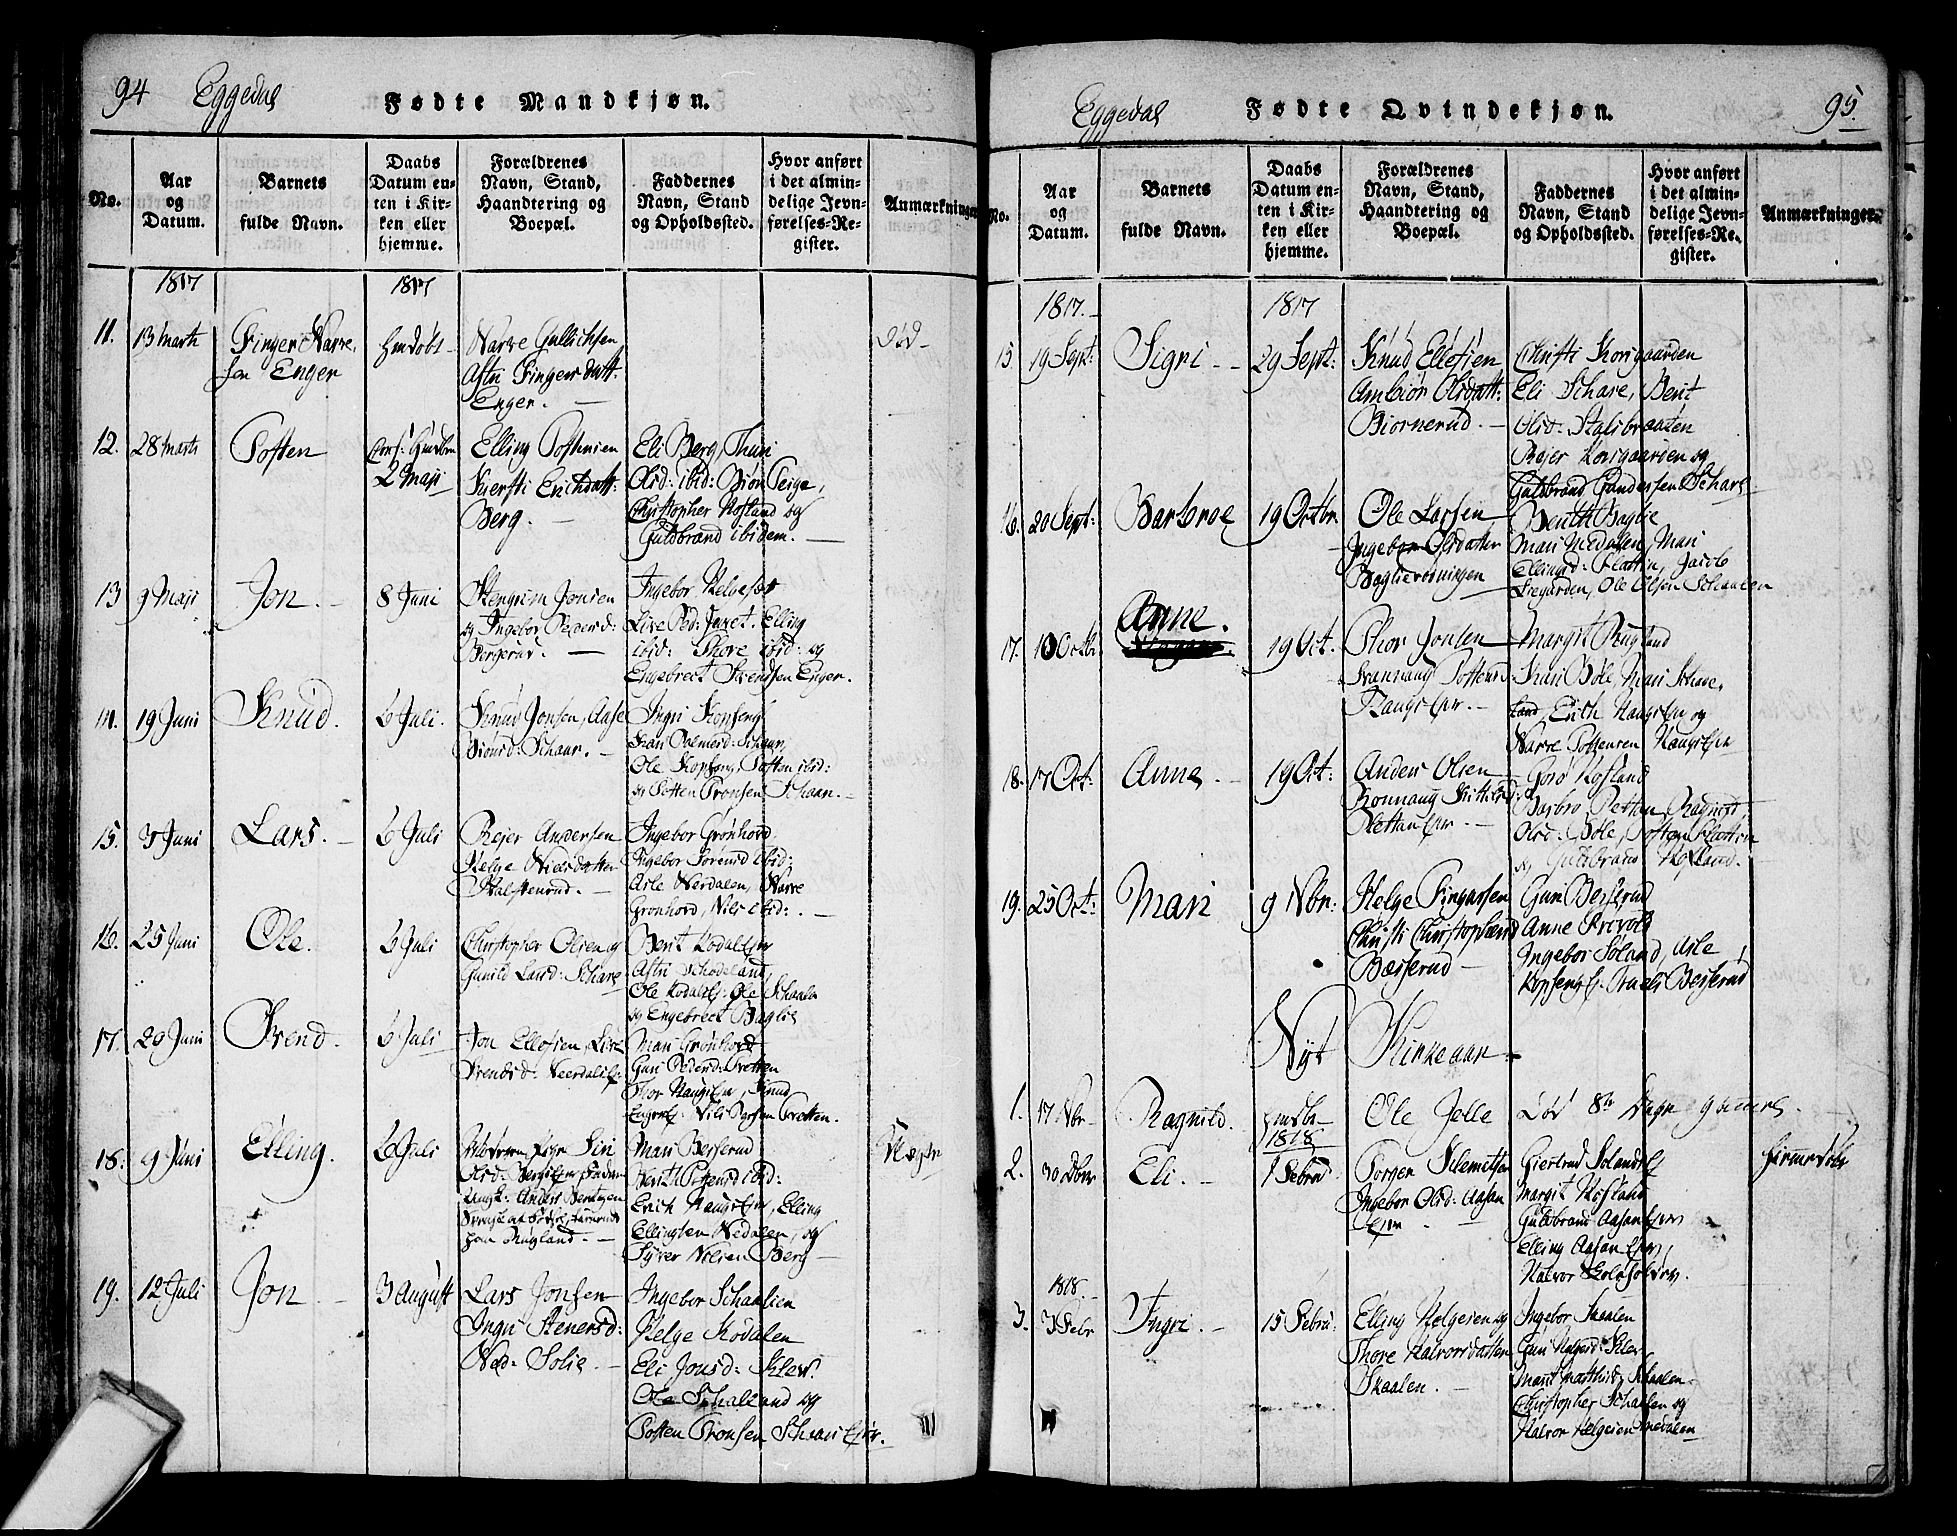 94 Eggedal Fødte Mandkjøn.
No.
Aar
og
Datum.
Barnets
fulde Navn.
Daabs
Datum en-
ten i Kir-
ken eller
hjemme.
Forældrenes
Navn, Stand,
Haandtering og
Boepæl.
Faddernes
Navn, Stand
og Opholdssted.
Hvor anført
i det almin-
delige Jevn-
førelses-Re-
gister.
Anmærkninger
1817
1817
11.
13 Marti
Finger Narve-
sen Enger
Hmdøbt
Narve Gullichsen
Astri Fingersdatt:
Enger.
død
12.
28 Marti
Tosten
Conf: Hmdøbn
2 Maji
Elling Tostensen
Kjersti Erichdatt:
Berg.
Eli Berg, Thuri
Olsd: ibid: Biøn Teige,
Christopher Hofland og
Guldbrand ibidem.
13
9 Maji
Jon.
8 Juni
Stengrim Jonsen
og Ingebor Pedersd:
Bergerud.
Ingebor Helgeset
Live
Elling
ibid: Thore ibid: og
Engebrect Svendsen Enger.
14.
19 Juni
Knud.
6 Juli.
Knud Jonsen, Aase
Biønsd: Schaar.
Ingri Kopseng
Schaar,
Ole Kopseng, Tosten ibid:
og Tosten Tronsen Schaan.
15.
3 Juni
Lars.
6 Juli
Rejer Andersen
Helge Nielsdatter
Halstenrud.
Ingebor Grønhord
Ingebor Sorensd ibid:
Asle Nerdalen, Narve
Grønhord, Nils ibid:
16.
25 Juni
Ole.
6 Juli
Christopher Olsen og
Gunild Larsd: Schare
Berit Kodalsejer
Astri Schodeland,
Ole Kodals: Ole Schaaln
og Engebrect Baglie
17.
29 Juni
Svend.
6 Juli
Jon Ellefsen, Live
Svendsd: Neerdalsej:
Mari Grønhord
Guri
Thor Haugsejer, Knud
Nils Larsen Tretten.
18.
9 Juni
Elling.
6 Juli
Siri
Olsd:
Ungk: Anders
Rugland.
Mari Besserud
Berit Tostensd ibid:
Erich Haugsejer, Elling
Ellingsen Nedalen, og
Syver Nilsen Berg
Uægte
19.
12 Juli
Jon
3 August
Lars Jonsen
Ingri Stenersd:
Ned: Solie.
Ingebor Schaalien
Helge Kodalen
Eli Jonsd: Klev.
Ole Schalland og
Tosten Tronsen Schaanejer.
Eggedal Fødte Qvindekjøn. 95.
No.
Aar
og
Datum.
Barnets
fulde Navn.
Daabs
Datum en-
ten i Kir-
ken eller
hjemme.
Forældrenes
Navn, Stand,
Haandtering og
Boepæl.
Faddernes
Navn, Stand
og Opholdssted.
Hvor anført
i det almin-
delige Jevn-
førelses-Re-
gister.
Anmærkninger.
1817.
1817
15
19 Sept:
Sigri
29 Sept:
Knud Ellefsen
Ambiør Olsdatt:
Biornerud.
Christi Korsgaarden
Eli Schare, Berit
Olsd: Stalsbraaten
Rejer Korsgaarden og
Guldbrand Gundersen Schare
16.
20 Sept:
Barbroe
19 Octbr
Ole Larsen
Ingebor Olsdatter
Baglierødningen
Berith Baglie
Mari Nedalen, Mari
Ellingsd: Flattin, Jacob
Ole Olsen Schaalen
17.
10 Octbr
Anne.
19 Oct.
Thor Jonsen
Svannaug Tostensd
Haugsejer.
Margit Rugland
Kari Bøle, Mari Schave-
land, Erich Haugsejer og
Narve Tostensen Haugsejer
18.
17 Oct:
Anne
19 Oct:
Anders Olsen
Ronnaug Kittelsd:
Plettanejer
Goro Hofland
Barbro Plettan, Ragnild
Olsd: Bøle, Tosten Flattin
og Guldbrand Hofland.
19.
25 Oct:
Mari
9 Nbr:
Helge Fingarsen
Christi Christophersd
Besserud
Guri Besserud
Anne Frivold
Ingebor Soland, Asle
Kopsengej. Truels Besserud
Nyt Kirkeaar
1.
17 Nbr
Ragnild.
Hmdbt
1818
Ole Jelle
død 8te Dage gammel.
2.
30 Dbr
Eli.
1 Februr
Torger Clemetsen
Ingebor Olsd: Aasan
Ejer
Giertrud Solandsej
Margit Hofland
Guldbrand Aasan Ejer
Elling Aasan Ejer,
Halvor
Hiemmedøbt
1818.
3.
3 Febr
Ingri.
15 Febru:
Elling Helgesen og
Thore Halvorsdatter
Skaalen.
Ingebor Skaalen
Guri Halvorsd: Klev
Marit Schaalen
Christopher Schaalen og
Halvor Helgesen Nedalen